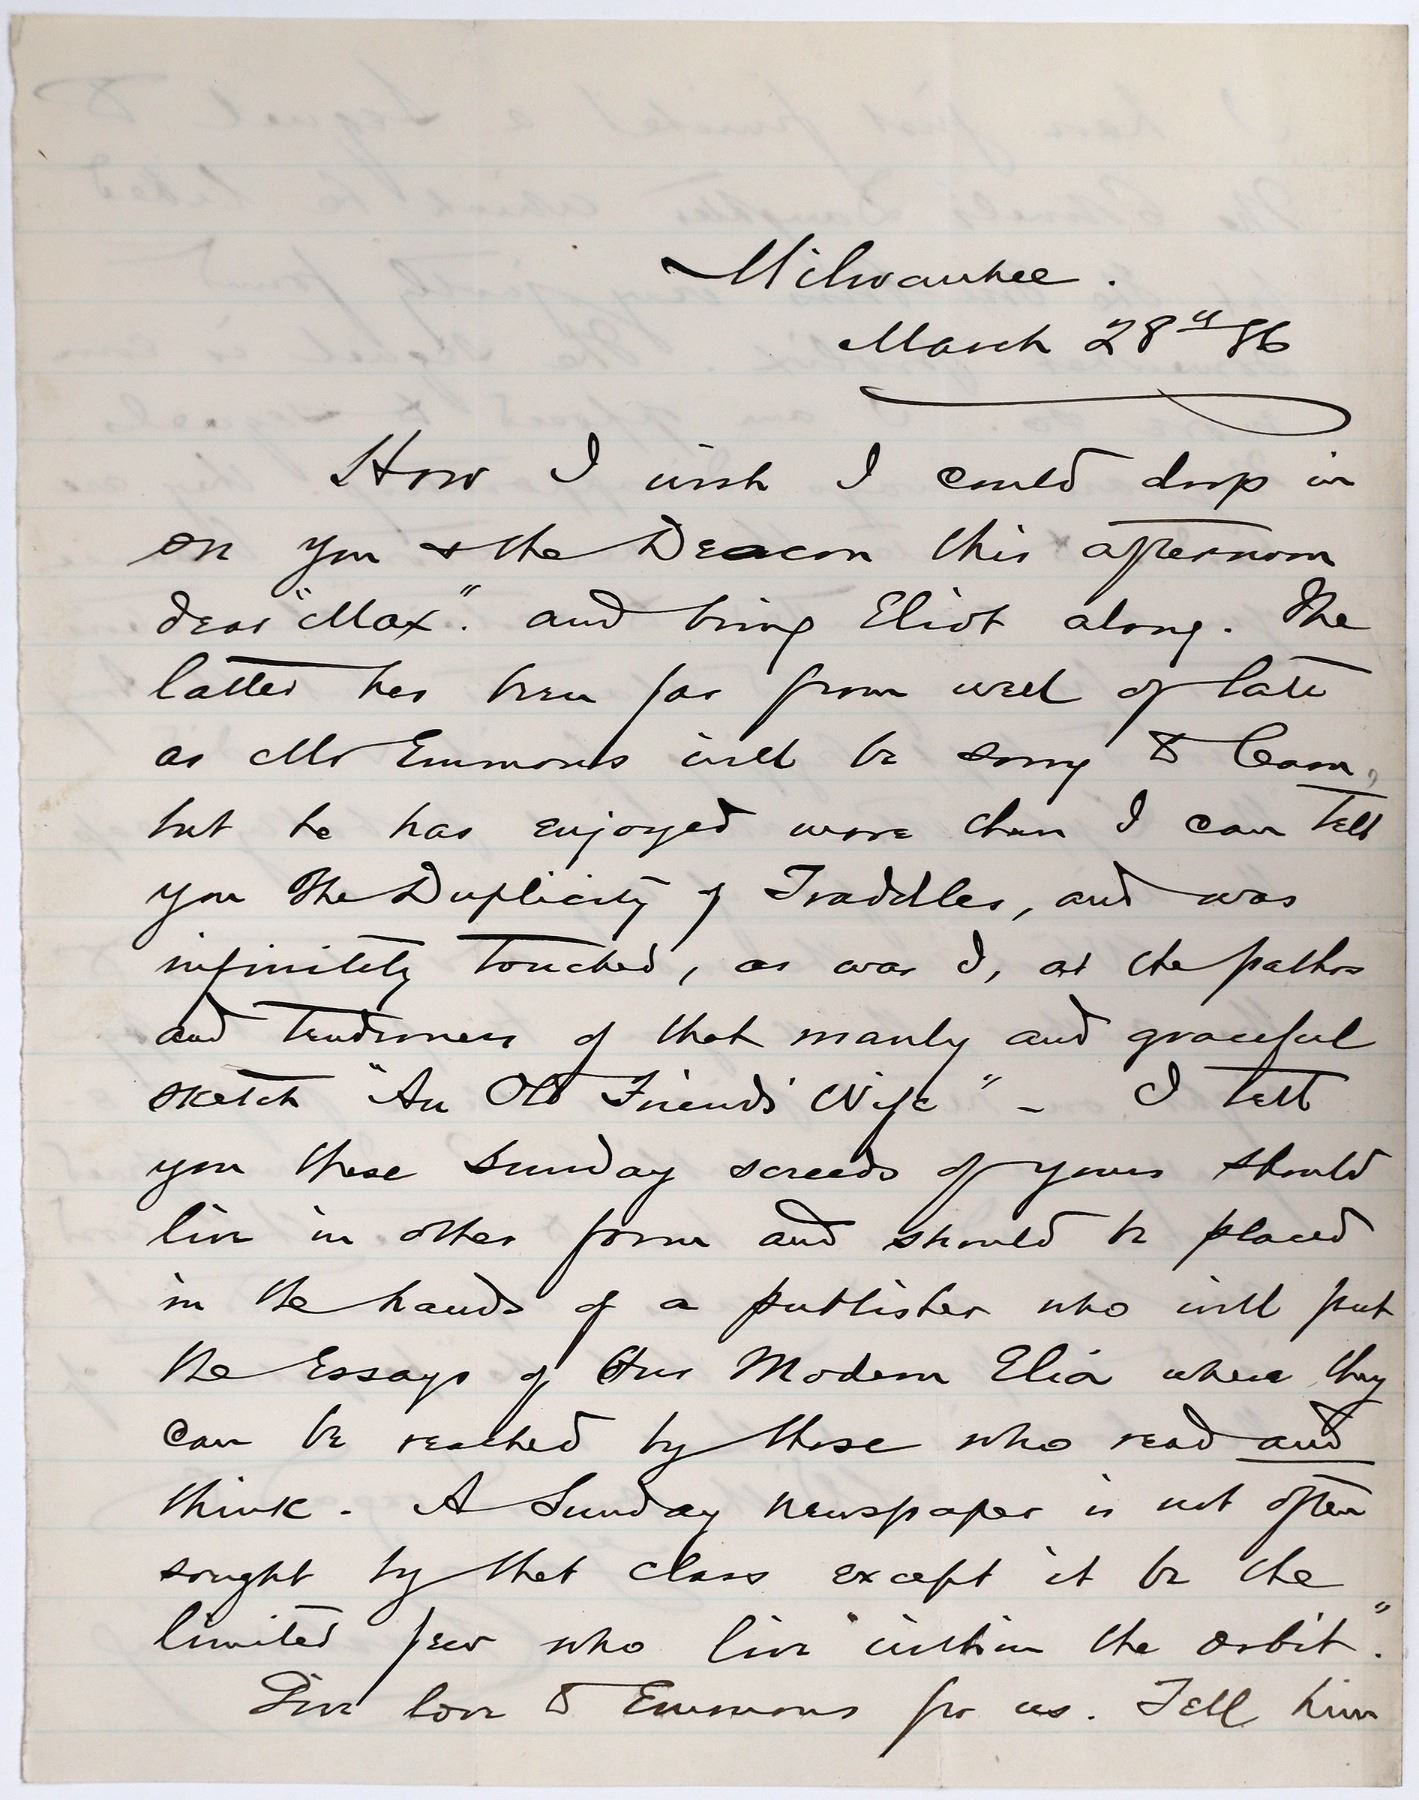 Milwaukee.
March 28th 86
How I wish I could drop in
on you & the Deacon this afternoon
dear "Max". and bring Eliot along. The
latter has been far from well of late
as Mr Emmons will be sorry to learn,
but he has enjoyed more than I can tell
you The Duplicity of Traddles, and was
infinitely touched, as was I, at the pathos
and tenderness of that manly and graceful
sketch "An Old Friend's Wife" - I tell
you these Sunday screeds of yours should
live in other form and should be placed
in the hands of a publisher who will put
the Essays of Our Modern Elia where they
can be reached by those who read and
think. A Sunday newspaper is not often
sought by that class except it be the
limited few who live "within the orbit".
Give love to Emmons for us. Tell him